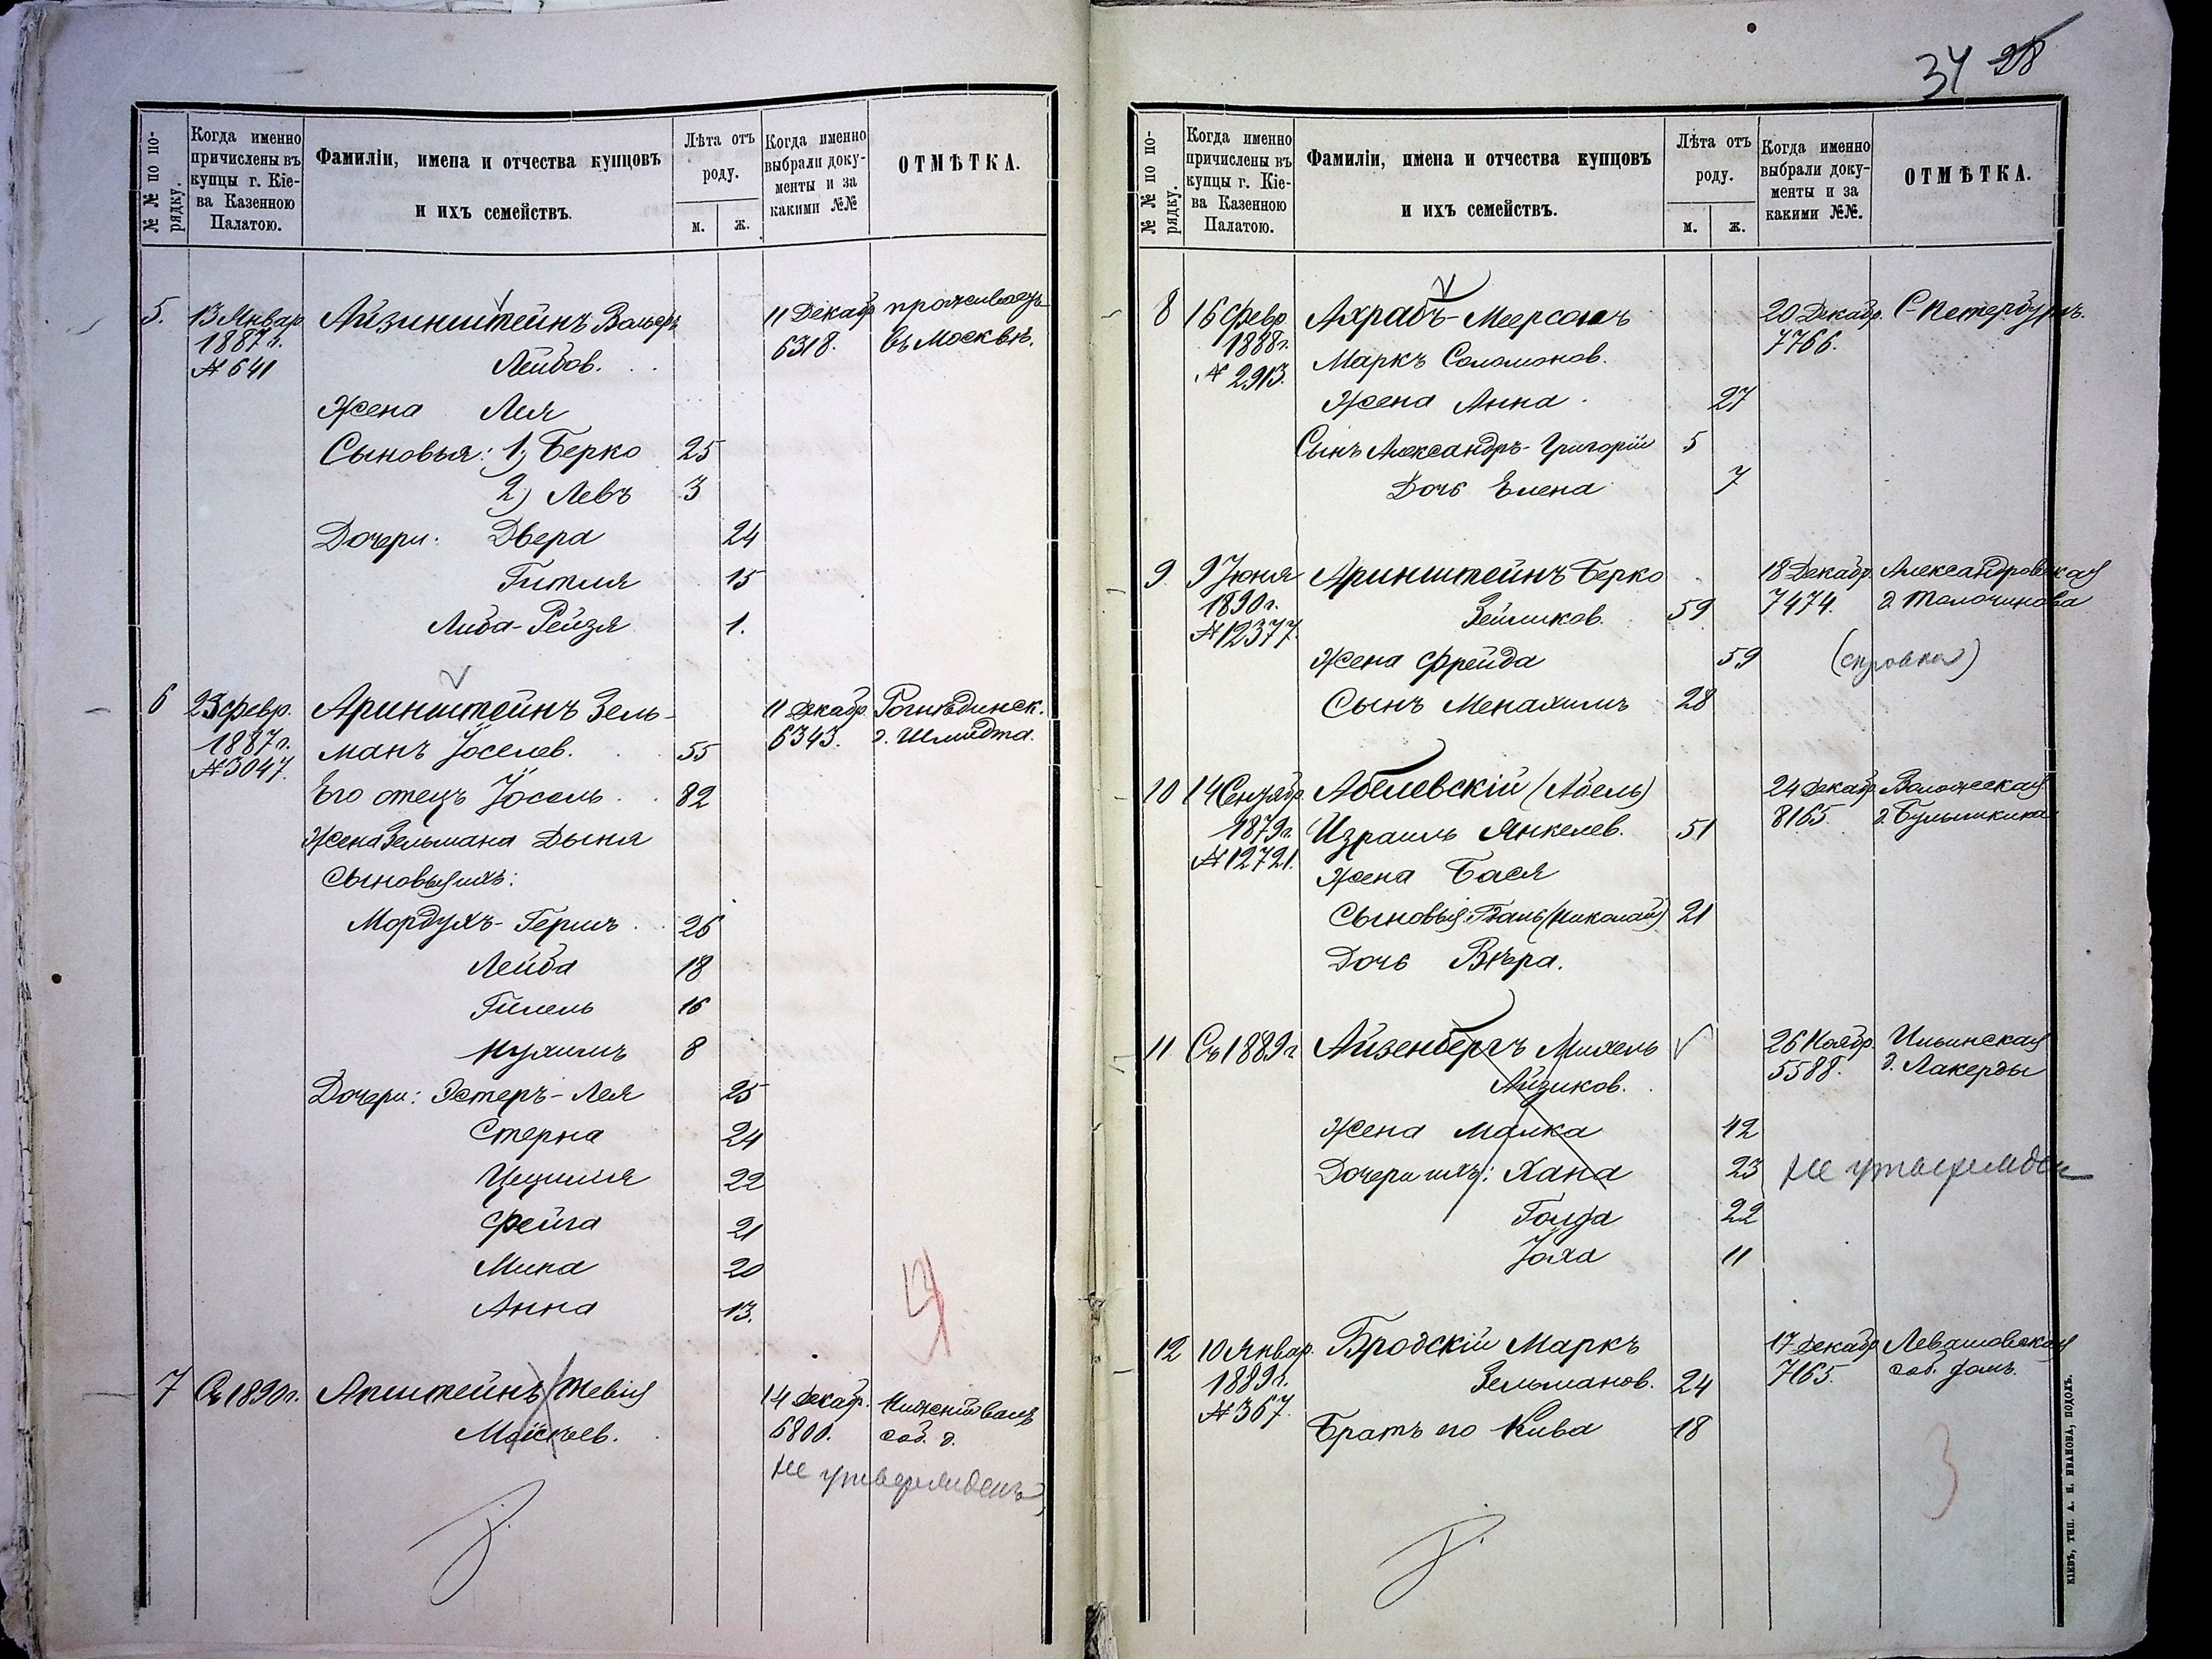 34 28
№ № по по-
рядку.
Когда именно
причислены въ
купцы г. Кіе-
ва Казенною
Палатою.
Фамиліи, имена и отчества купцовъ
и ихъ семействъ.
Лѣта отъ
роду.
м. ж.
Когда именно
выбрали доку-
менты и за
какими №№
ОТМѢТКА.
5. 13 Январ. Айзинштейнъ Вольфъ 11 Декабр. проживаетъ
1887 г. Лейбов. 6318. въ Москвѣ.
№ 641
Жена Лея
Сыновья: 1) Берко 25
2) Левъ 3
Дочери: Двера 24
Гитля 15
Либа-Рейзя 1.
6 23 Февр. Аринштейнъ Зель- 11 Декабр. Рогнѣдинск.
1887 г. манъ Іоселев. 55 6343. д. Шмидта.
№ 3047.
Его отецъ Іосель 82
Жена Зельмана Дыня
Сыновья ихъ:
Мордухъ-Гершъ 26
Лейба 18
Гилель 16
Нухимъ 8
Дочери: Эстеръ-Лея 25
Стерна 24
Цецилія 22
Фейга 21
Мина 20
Анна 13.
7 Съ 1890 г. Апштейнъ Тевія 14 Декабр. Нижній валъ
Моисѣев. 6800. соб. д.
не утвержденъ
№ № по по-
рядку.
Когда именно
причислены въ
купцы г. Кіе-
ва Казенною
Палатою.
Фамиліи, имена и отчества купцовъ
и ихъ семействъ.
Лѣта отъ
роду.
м. ж.
Когда именно
выбрали доку-
менты и за
какими №№.
ОТМѢТКА.
8 16 Февр. Ахрабъ-Меерсонъ 20 Декабр. С-Петербургъ.
1888 г. Маркъ Соломонов. 7766.
№ 2913.
Жена Анна 27
Сынъ Александръ-Григорій 5
Дочь Елена 7
9 9 Іюня Аринштейнъ Берко 18 Декабр. Александровская
1890 г. Зейликов. 59 7474. д. Толочинова
№ 12377.
Жена Фрейда 59 (справка)
Сынъ Менахимъ 28
10 14 Сентябр. Абелевскій (Абель) 24 Декабр. Волошская
1879 г. Израиль Янкелев. 51 8165. д. Булышкина
№ 12721.
Жена Бася
Сыновья: (Николай) 21
Дочь Вѣра.
11 Съ 1889 г. Айзенбергъ Михель 26 Ноябр. Ильинская
Айзиков. 5588. д. Лакерды
Жена Малка 42
Дочери ихъ: Хана 23 не утвержден
Голда 22
Іоха 11
12 10 Январ. Бродскій Маркъ 17 Декабр. Левашовская
1889 г. Зельманов. 24 7165. соб. домъ.
№ 367.
Братъ по Кива 18
3
КІЕВЪ, ТИП. А. Н. ИВАНОВА, ПОДОЛЪ.